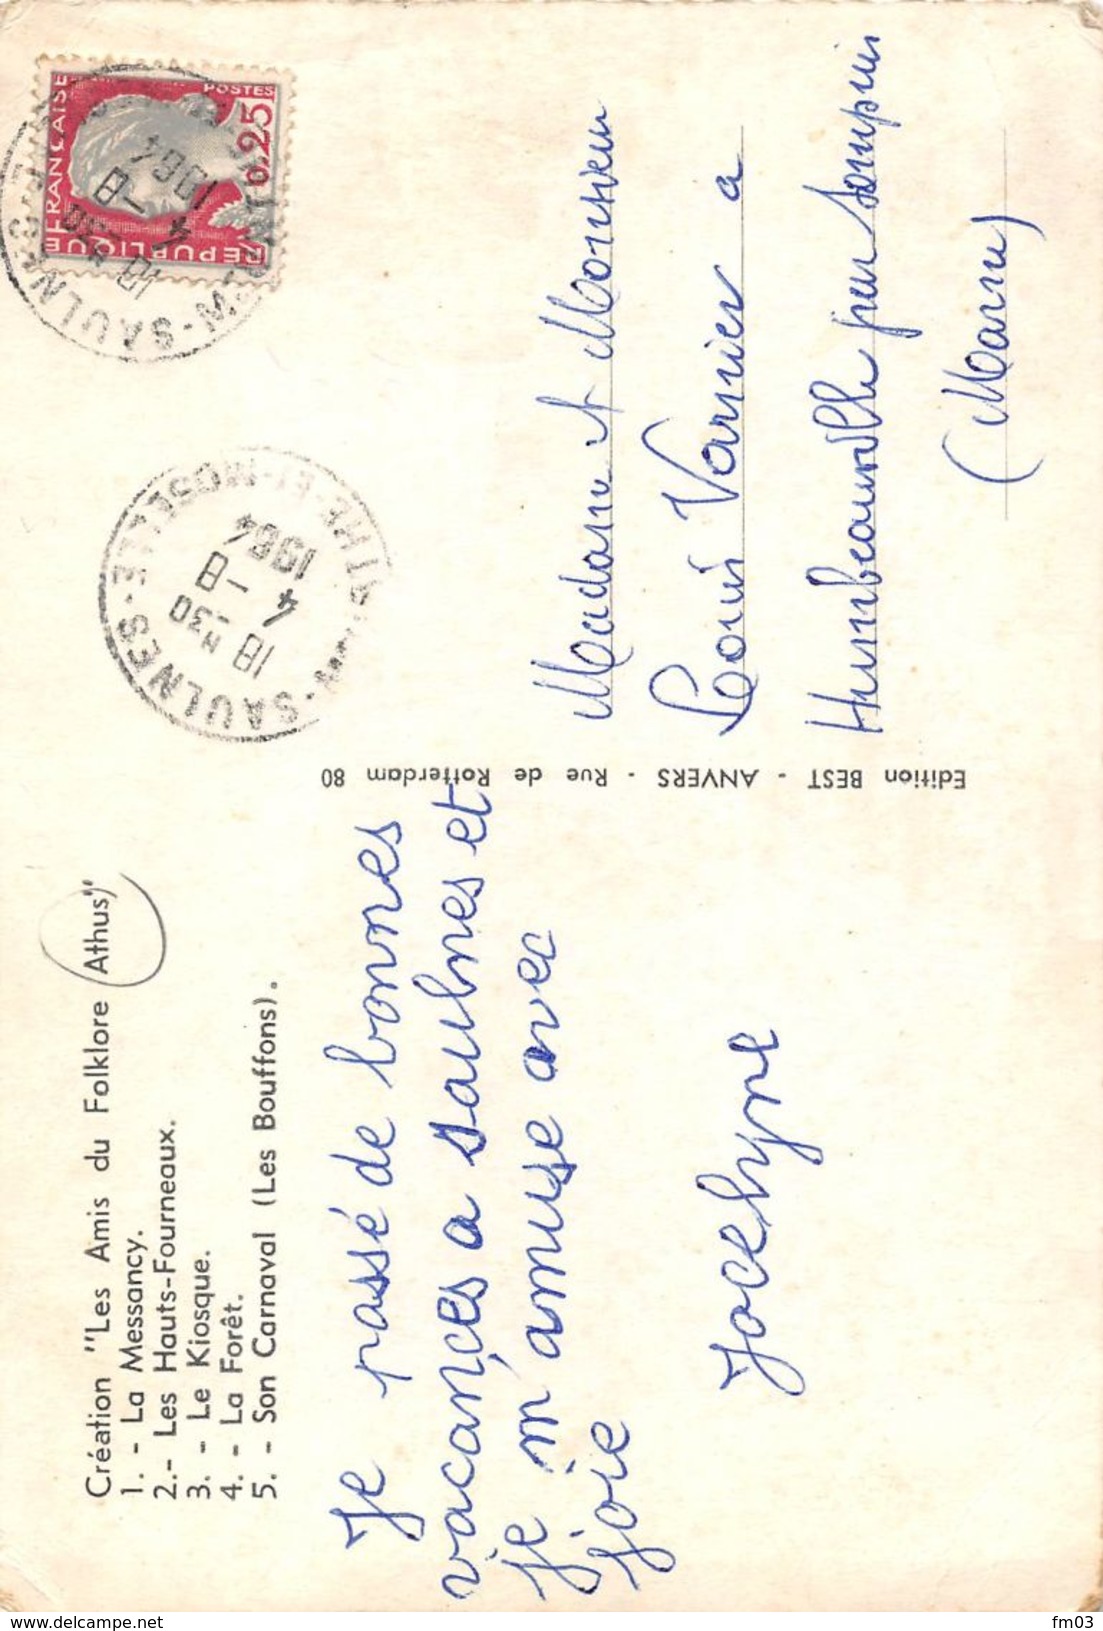 Création "Les Amis du Folklore Athus"
1. - La Messancy.
2.- Les Hauts-Fourneaux.
3. - Le Kiosque.
4. - La Forêt.
5. - Son Carnaval (Les Bouffons).
Je passé de bonnes
vacançes a saulnes et
je m'amuse avec
joie
Jocelyne
Edition BEST - ANVERS - Rue de Rotterdam 80
REPUBLIQUE FRANÇAISE
POSTES
0,25
SAULNES
18 H 30
4 -8
1964
SAULNES
-ET-MOSELLE
18 H 30
4 -8
1964
Madame et Monsieur
Louis Varnier a
Humbeauville par Sompuis
(Marne)
www.delcampe.net
fm03